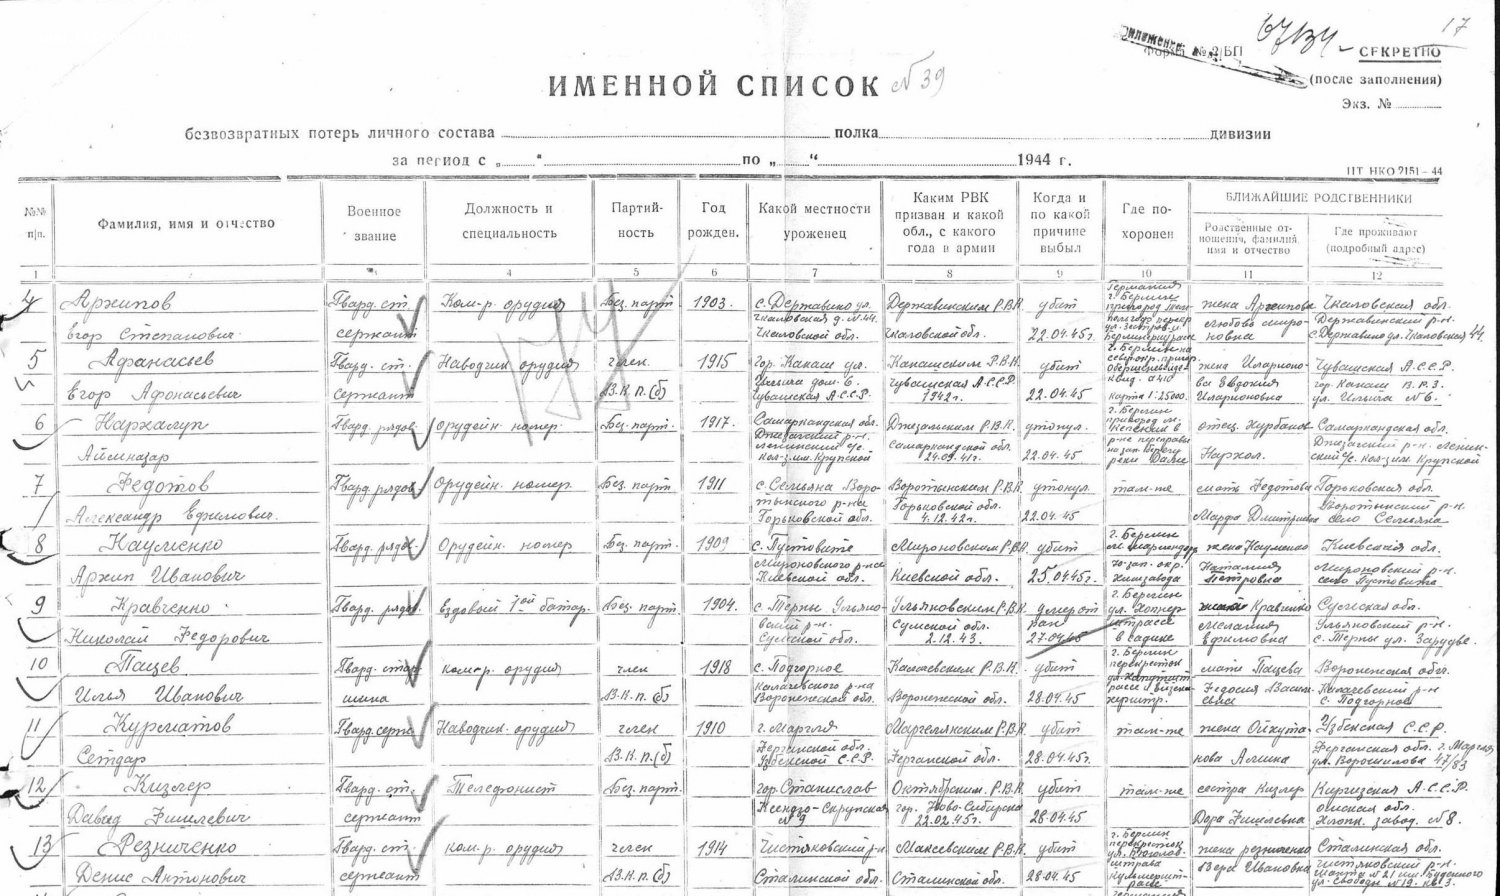 17
67134
Форма № 2/БП
СЕКРЕТНО
(после заполнения)
Экз. №
ИМЕННОЙ СПИСОК № 39
безвозвратных потерь личного состава полка дивизии
за период с „ “ по „ “ 1944 г.
ЦТ НКО 2151–44
№№ п/п. Фамилия, имя и отчество Военное звание Должность и специальность Партий-ность Год рожден. Какой местности уроженец Каким РВК призван и какой обл., с какого года в армии Когда и по какой причине выбыл Где по-хоронен БЛИЖАЙШИЕ РОДСТВЕННИКИ
Родственные от-ношения, фамилия, имя и отчество Где проживают (подробный адрес)
1 4 5 6 7 8 9 10 11 12
4 Архипов Гвард. ст. Ком-р. орудия Без. парт. 1903. с. Державино ул. Державинским Р.В.К. убит жена Архипова Чкаловская обл.
Егор Степанович сержант Чкаловская д. №44. Чкаловской обл. Чкаловской обл. 22.04.45г. Любовь Миро-новна Державинский р-н. с. Державино ул. Чкаловская 44.
5 Афанасьев Гвард. ст. Наводчик орудия член 1915 гор. Канаш ул. Канашским Р.В.К. убит г. Берлин жена Иларионо- Чувашская А.С.С.Р.
Егор Афонасьевич сержант В.К.П.(б) Ильича дом. 6. Чувашская А.С.С.Р. Чувашская А.С.С.Р. 1942г. 22.04.45 карта 1:25000. ва Евдокия Иларионовна гор. Канаш В.Р.З. ул. Ильича №6.
6 Нархалуп Гвард. рядов. Орудейн. номер. Без. парт. 1917. Самаркандская обл. Джизакским Р.В.К. утонул. г. Берлин отец. Курбанов Самаркандская обл.
Аймназар Джизакский р-н. Ленинский с/с. кол-з. им. Крупской Самаркандской обл. 22.04.45 реки Даме Нархол. Джизакский р-н Ленин-ский с/с. кол-з. им. Крупской
7 Федотов Гвард. рядов. Орудейн. номер. Без. парт. 1911 с. Семьяна Воро- Воротынским Р.В.К. утонул. там-же мать Федотова Горьковская обл.
Александр Ефимович. тынского р-на Горьковской обл. Горьковской обл. 4.12.42г. 22.04.45 Марфа Дмитриевна Воротынский р-н. село Семьяна
8 Науменко Гвард. рядов. Орудейн. номер Без. парт. 1909 с. Пустовите Мироновским Р.В.К. убит г. Берлин жена Науменко Киевская обл.
Архип Иванович Мироновского р-на Киевской обл. Киевской обл. 25.04.45г. Наталия Петровна Мироновский р-н. село Пустовита
9 Кравченко Гвард. рядов. ездовый 1ой батар. Без. парт. 1904. с. Терны Ульяно- Ульяновским Р.В.К. умер от г. Берлин жена Кравченко Сумская обл.
Николай Федорович вский р-н. Сумской обл. Сумской обл. 2.12.43. ран 27.04.45 в садике Мелания Ефимовна Ульяновский р-н. с. Терны ул. Зарудье.
10 Пацев Гвард. стар- ком-р. орудия член 1918 с. Подгорное Калачевским Р.В.К. убит г. Берлин мать Пацева Воронежская обл.
Илья Иванович шина В.К.П.(б) Калачевского р-на Воронежской обл. Воронежской обл. 28.04.45 Федосия Васи- Калачевский р-н с. Подгорное
11 Курматов Гвард. серж. Наводчик. орудия член 1910 г. Маргилан Маргеланским Р.В.К. убит там-же жена Ойкута- Узбекская С.С.Р.
Сетдар В.К.П.(б) Ферганской обл. Узбекской С.С.Р. Ферганской обл. 28.04.45г. нова Алмина Ферганская обл. ул. Ворошилова 47/83
12 Кизлер Гвард. ст. Телефонист Без. парт. гор. Станислав Октябрским. Р.В.К. убит там-же сестра Кизлер Киргизская А.С.С.Р.
Давид Фишлевич сержант №9 гор. Ново-Сибирска 22.02.45г. 28.04.45 Дора Фишлевна Ошская обл. Хлопк. завод. №8.
13 Резниченко Гвард. ст. ком-р. орудия член 1914 Чистяковский р-н Макеевским Р.В.К. убит г. Берлин жена Резниченко Сталинская обл.
Денис Антонович сержант В.К.П.(б) Сталинской обл. Сталинской обл. 28.04.45 Вера Ивановна Чистяковский р-н. шахта №21 им. Буденного ул. Свободы №19. кв. 3.